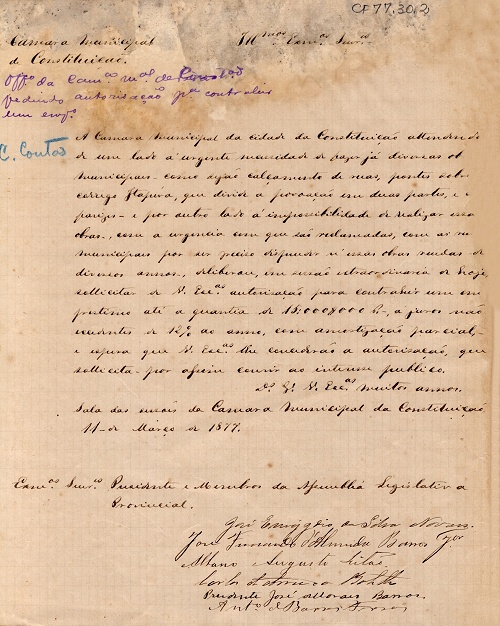 CF77.30.2
Camara Municipal
de Constituicão.
Illmos. Exmos. Snrs.
Offº. da Camª. Mal. de
pedindo autorisação pª contrahir
um empº.
C. Contas
A Camara Municipal da cidade da Constituição attendendo
de um lado á urgente necessidade de fazer já diversas ob
municipaes como sejão calçamento de ruas, pontes sobre
corrego Itapeva, que divide a povoação em duas partes, e o
e por outro lado a impossibilidade de realizar essas
obras, com a urgencia com que são reclamadas, com as re
municipaes por ser preciso dispender n'essas obras rendas de
diversos annos, deliberou, em sessão extraordinaria de hoje
sollicitar de V. Excas autorização para contrahir um em
prestimo até a quantia de 15:000$000 rs, a juros não
excedentes de 12% ao anno, com amortização parcial,
e espera que V. Excas lhe concederão a autorização, que
sollicita por assim convir ao interesse publico.
Ds. Gde. V. Excas muitos annos.
Sala das sessões da Camara Municipal da Constituição
11 de Março de 1877.
Exmos. Snrs. Presidente e Membros da Assembléa Legislativa
Provincial.
José Emygdio da Silva Novaes
José Fernando d'Almeida Barros Jor.
Albano Augusto
Carlos
Prudente José de Moraes Barros.
Antº. de Barros Ferraz